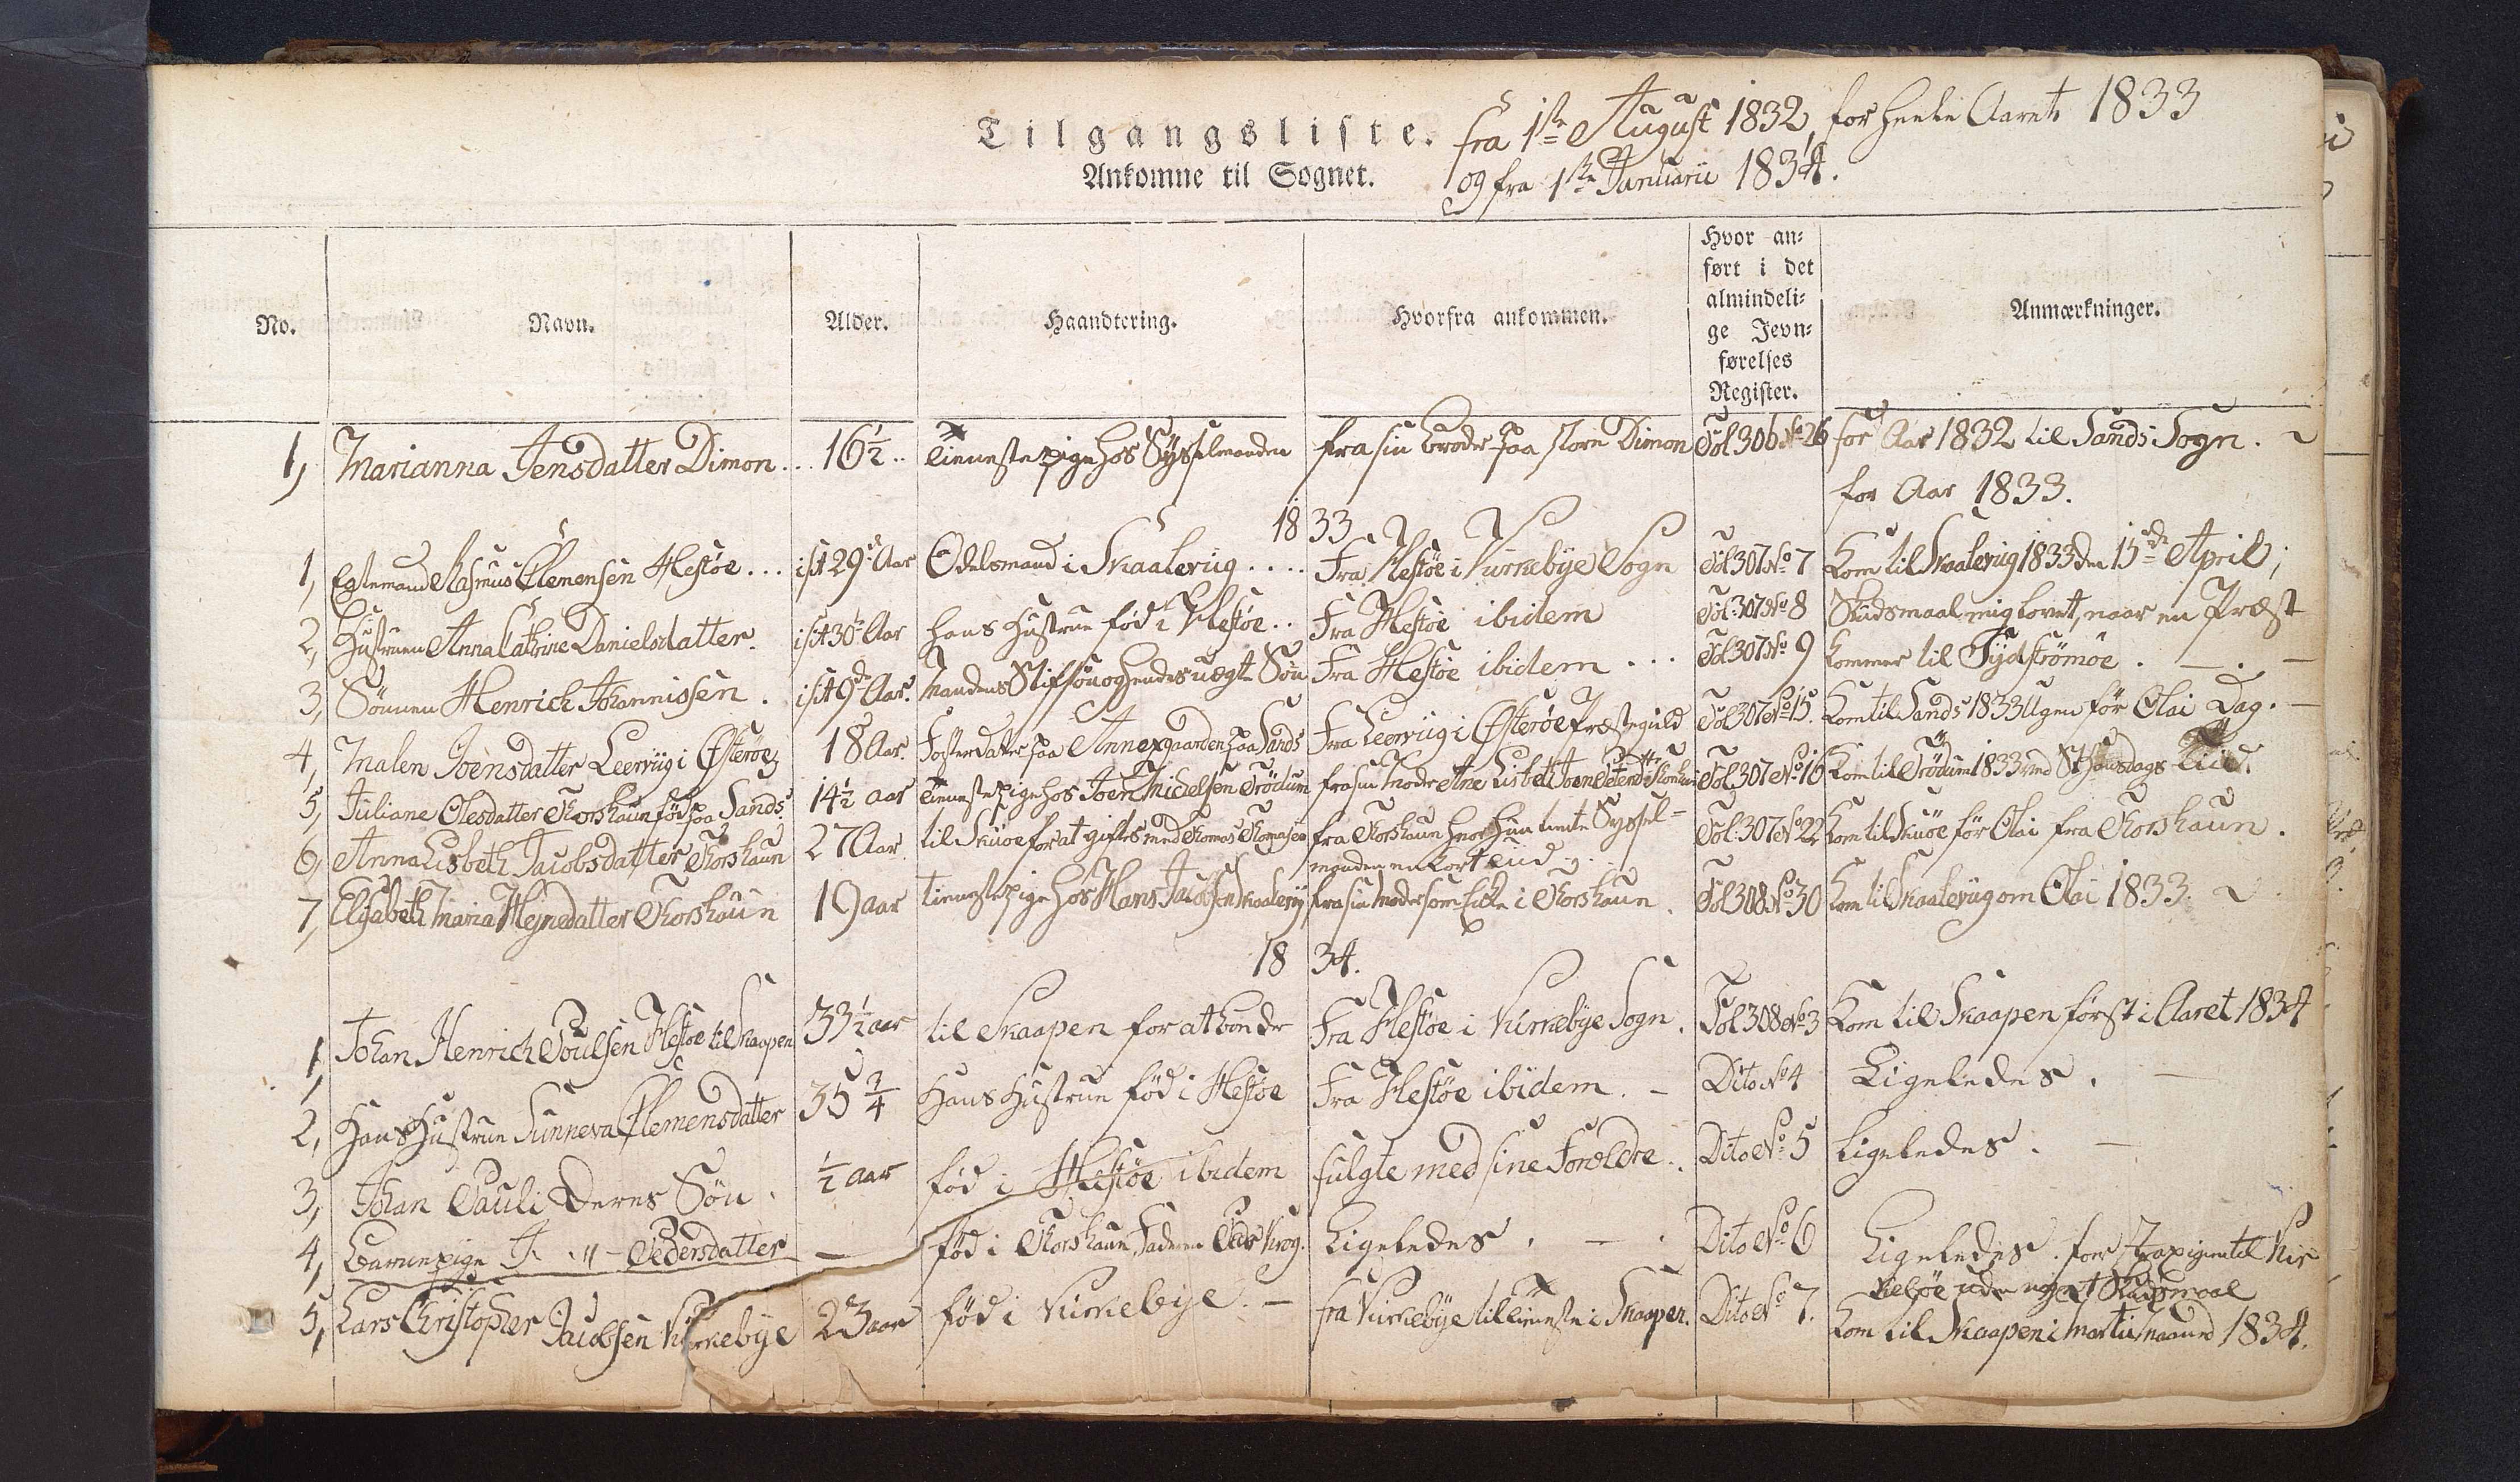 Tilgangsliste. fra 1ste August 1832, for heele Aaret 1833
Ankomne til Sognet. og fra 1ste Januarii 1834.
No. Navn. Alder. Haandtering. Hvorfra ankommen. Hvor an= ført i det almindeli= ge Jevn= førelses Register. Anmærkninger.
1, Marianna Jensdatter Dimon... 16½.. Tienestepige hos Sysselmanden fra sin Broder paa store Dimon Fol 306 No 26 for Aar 1832 til Sands Sogn.
for Aar 1833.
1833
1, Egtemand Rasmus Clemensen Hestøe... i sit 29de Aar Odelsmand i Skaaleviig.... Fra Hestøe i Kirkebye Sogn Fol 307 No 7 Kom til Skaalevig 1833 den 15de April;
2, Hustruen Anna Cathrine Danielsdatter. i sit 30te Aar hans Hustrue fød i Hestøe.. Fra Hestøe ibidem Fol: 307 No 8 Skudsmaal mig lovet, naar en Præst
3, Sønnen Henrich Johannissen. i sit 9de Aar. Mandens Stifsøn og hendes uægte Søn Fra Hestøe ibidem... Fol 307 No 9 kommer til Sydstrømøe. — . —
4, Malen Joensdatter Leerviig i Østerøe 18 Aar. Fosterdatter paa Annexgaarden paa Sands Fra Leerviig i Østerøe Præstegield Fol 307 No 15. Kom til Sands 1833 Ugen før Olai Dag. —
5, Juliane Olesdatter Thorshaun fød paa Sands 14½ aar Tienestepige hos Joen Michelsen Trødum fra sin Moder Ane Lisbeth Joens Fol 307 No 16 Kom til Trødum 1833 ved St Hansdags Tiid.
6, Anna Lisbeth Jacobsdatter Thorshaun 27 Aar. til Skuøe for at giftes med Thomas Thomasen fra Thorshaun hvor hun tiente Syssel=
manden en kort tiid. Fol: 307 No 22 Kom til Skuøe før Olai fra Thorshaun.
7, Elisabeth Maria Hejnesdatter Thorshaun 19 aar tienestepige hos Hans Jacobsen Skaalevig fra sin Moder som Enke i Thorshaun. Fol 308 No 30 Kom til Skaaleviig om Olai 1833.
1834.
1, Johan Henrich Poulsen Hestøe til Skaapen 33½ aar til Skaapen for at boe der Fra Hestøe i Kirkebye Sogn. Fol 308 No 3 Kom til Skaapen først i Aaret 1834
2, Hans Hustrue Sunneva Clemensdatter 35 3/4 Hans Hustrue fød i Hestøe Fra Hestøe ibidem. — Dito No 4 Ligeledes. —
3, Johan Pauli Deres Søn. ½ aar fød i Hestøe ibidem fulgte med sine Forældre.. Dito No 5 Ligeledes. —
4, Barnepige J. — " — Pedersdatter — fød i Thorshaun, Faderen Krog. Ligeledes. — . Dito No 6 Ligeledes. foer strax igien til Kir
kebøe uden noget Skudsmaal
5, Lars Christopher Jacobsen Kirkebye 23 aar fød i Kirkebye. — fra Kirkebye til tieneste i Skaapen. Dito No 7. Kom til Skaapen i Martii Maaned 1834.